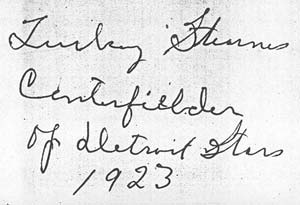 Turkey Stearnes
Centerfielder
of Detroit Stars
1923